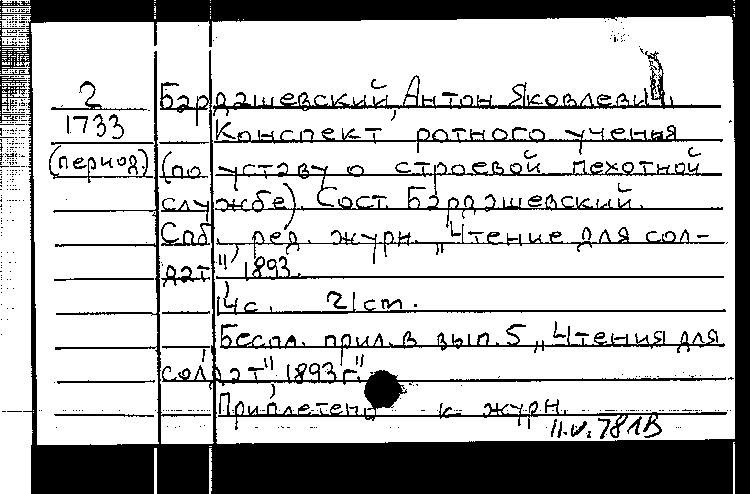 2
1733
(период)
Бардашевский, Антон Яковлевич.
Конспект ротного ученья
(по уставу о строевой пехотной
службе). Сост. Бардашевский.
Спб., ред. журн. „Чтение для сол-
дат", 1893.
14с. 21ст.
Беспл. прил. в вып. 5 „Чтения для
солдат", 1893г."
Приплетено к журн.